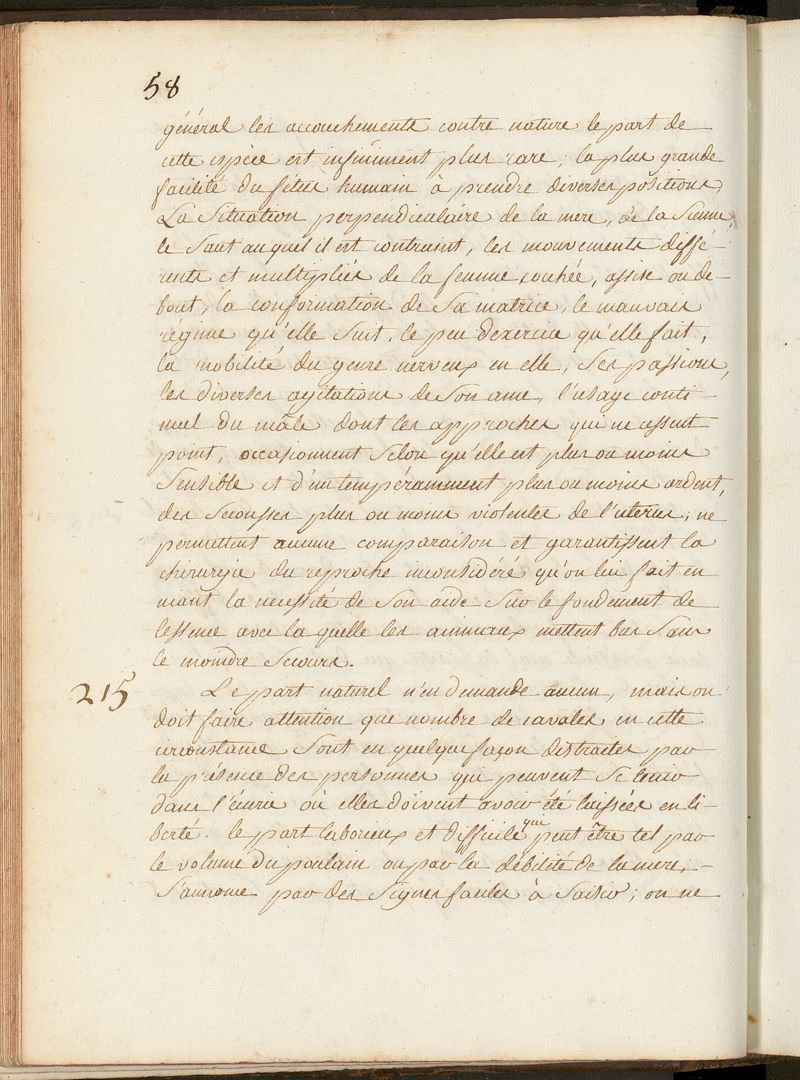 58
général les accouchements contre nature le part de
cette espèce est infiniment plus rare; la plus grande
facilité du fétus humain à prendre diverses positions,
La Situation perpendiculaire de la mere, de la Sienne,
le Saut auquel il est contraint, les mouvements diffé-
rents et multipliés de la femme couchée, assise ou de-
bout, la conformation de Sa matrice, le mauvais
régime qu'elle Suit, le peu d'exercice qu'elle fait,
la mobilité du genre nerveux en elle, Ses passions,
les diverses agitations de Son ame, l'usage conti-
nuel du mâle dont les approches qui ne cessent
point, occasionnent Selon qu'elle est plus ou moins
Sensible et d'un tempéramment plus ou moins ardent,
des Secousses plus ou moins violentes de l'uterus; ne
permettent aucune comparaison et garantissent la
chirurgie du reproche inconsidéré qu'on lui fait en
niant la necessité de Son aide Sur le fondement de
l'essence avec la quelle les animaux mettent bas Sans
le moindre Secours.
215 Le part naturel n'en demande aucun, mais on
doit faire attention que nombre de cavales en cette
circonstance Sont en quelque façon distraites par
la présence des personnes qui peuvent Se tenir
dans l'écurie où elles doivent avoir été laissées en li-
berté. le part laborieux et difficile qui peut être tel par
le volume du poulain ou par la débilité de la mere,
S'annonce par des Signes faciles à Saisir; on ne